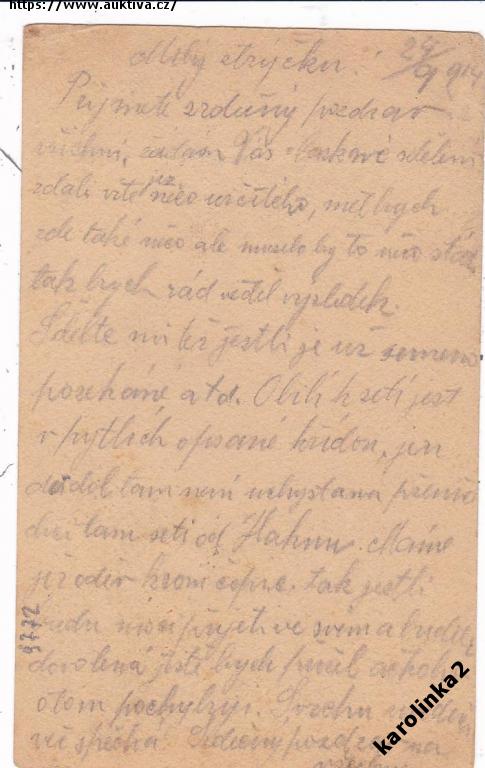 https://www.auktiva.cz/
Milý strýčku! 29/9 914
Přijmete srdečný pozdrav
všichni, žádám Vás laskavé sdělení
zdali víte už něco určitého, měl bych
zde také něco ale muselo by to něco stát
tak bych rád věděl výsledek.
Sdělte mi též jestli je už semeno
posekáné atd. Obilí k setí jest
v pytlích opsané křídou, jen
tam není uchystaná
tam setí od Hahnu. Máme
již oděv kromě čepic. tak jestli
budu moci přijeti ve svém a bude
dovolená ještě bych přišel ačkoliv
o tom pochybuji. Svrchu
vše spěchá. Srdečný pozdrav na
všechny
9772
karolinka2